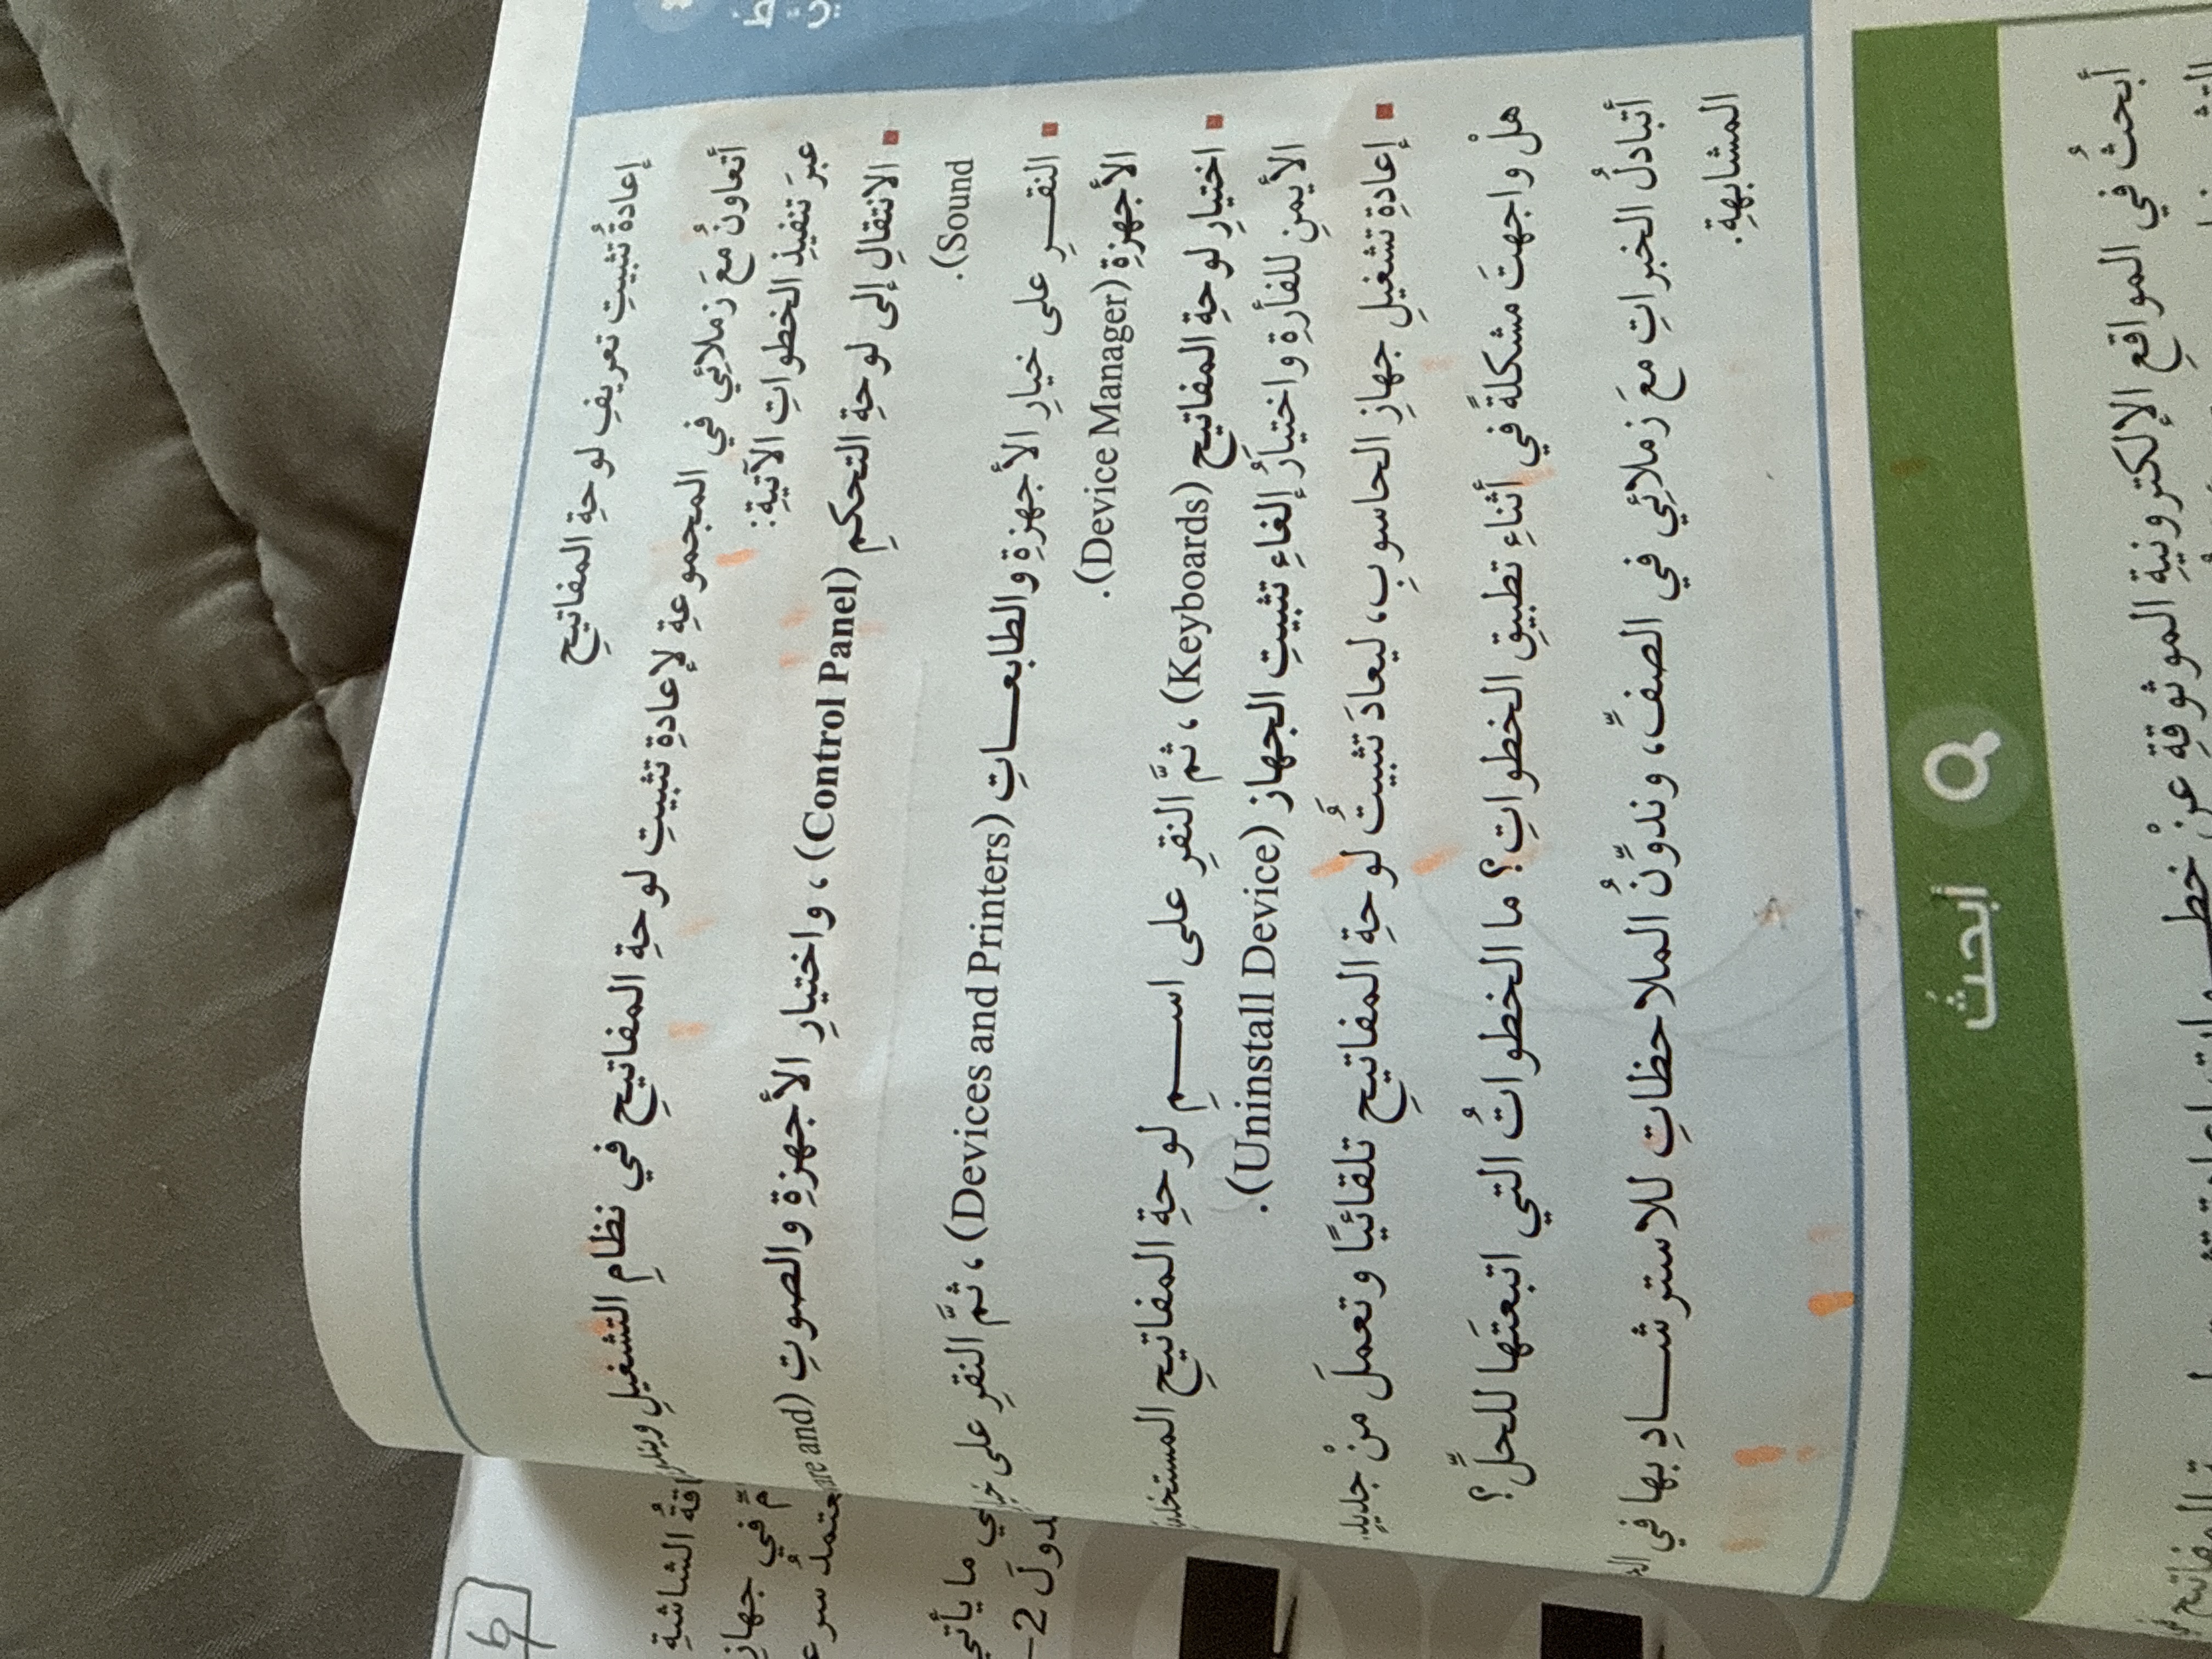 إعادةُ تثبيتِ تعريفِ لوحةِ المفاتيحِ
أتعاونُ معَ زملائي في المجموعةِ لإعادةِ تثبيتِ لوحةِ المفاتيحِ في نظامِ التشغيلِ
عبرَ تنفيذِ الخطواتِ الآتيةِ:
▪ الانتقالِ إلى لوحةِ التحكمِ (Control Panel)، واختيارِ الأجهزةِ والصوتِ (and
Sound).
▪ النقـــرِ على خيارِ الأجهزةِ والطابعـــاتِ (Devices and Printers)، ثمَّ النقرِ على
الأجهزةِ (Device Manager).
▪ اختيارِ لوحةِ المفاتيحِ (Keyboards)، ثمَّ النقرِ على اســـمِ لوحةِ المفاتيحِ
الأيمنِ للفأرةِ واختيارُ إلغاءِ تثبيتِ الجهازِ (Uninstall Device).
▪ إعادةِ تشغيلِ جهازِ الحاسوبِ، ليعادَ تثبيتُ لوحةِ المفاتيحِ تلقائيًا وتعملَ منْ جديدٍ.
هلْ واجهتَ مشكلةً في أثناءِ تطبيقِ الخطواتِ؟ ما الخطواتُ التي اتبعتَها للحلِّ؟
أتبادلُ الخبراتِ معَ زملائي في الصفِّ، وندوِّنُ الملاحظاتِ للاسترشـــادِ بها في
المشابهةِ.
أبحثُ
أبحثُ في المواقعِ الإلكترونيةِ الموثوقةِ عنْ
الشاشةِ
في جهازِ
ما يأتي
2–